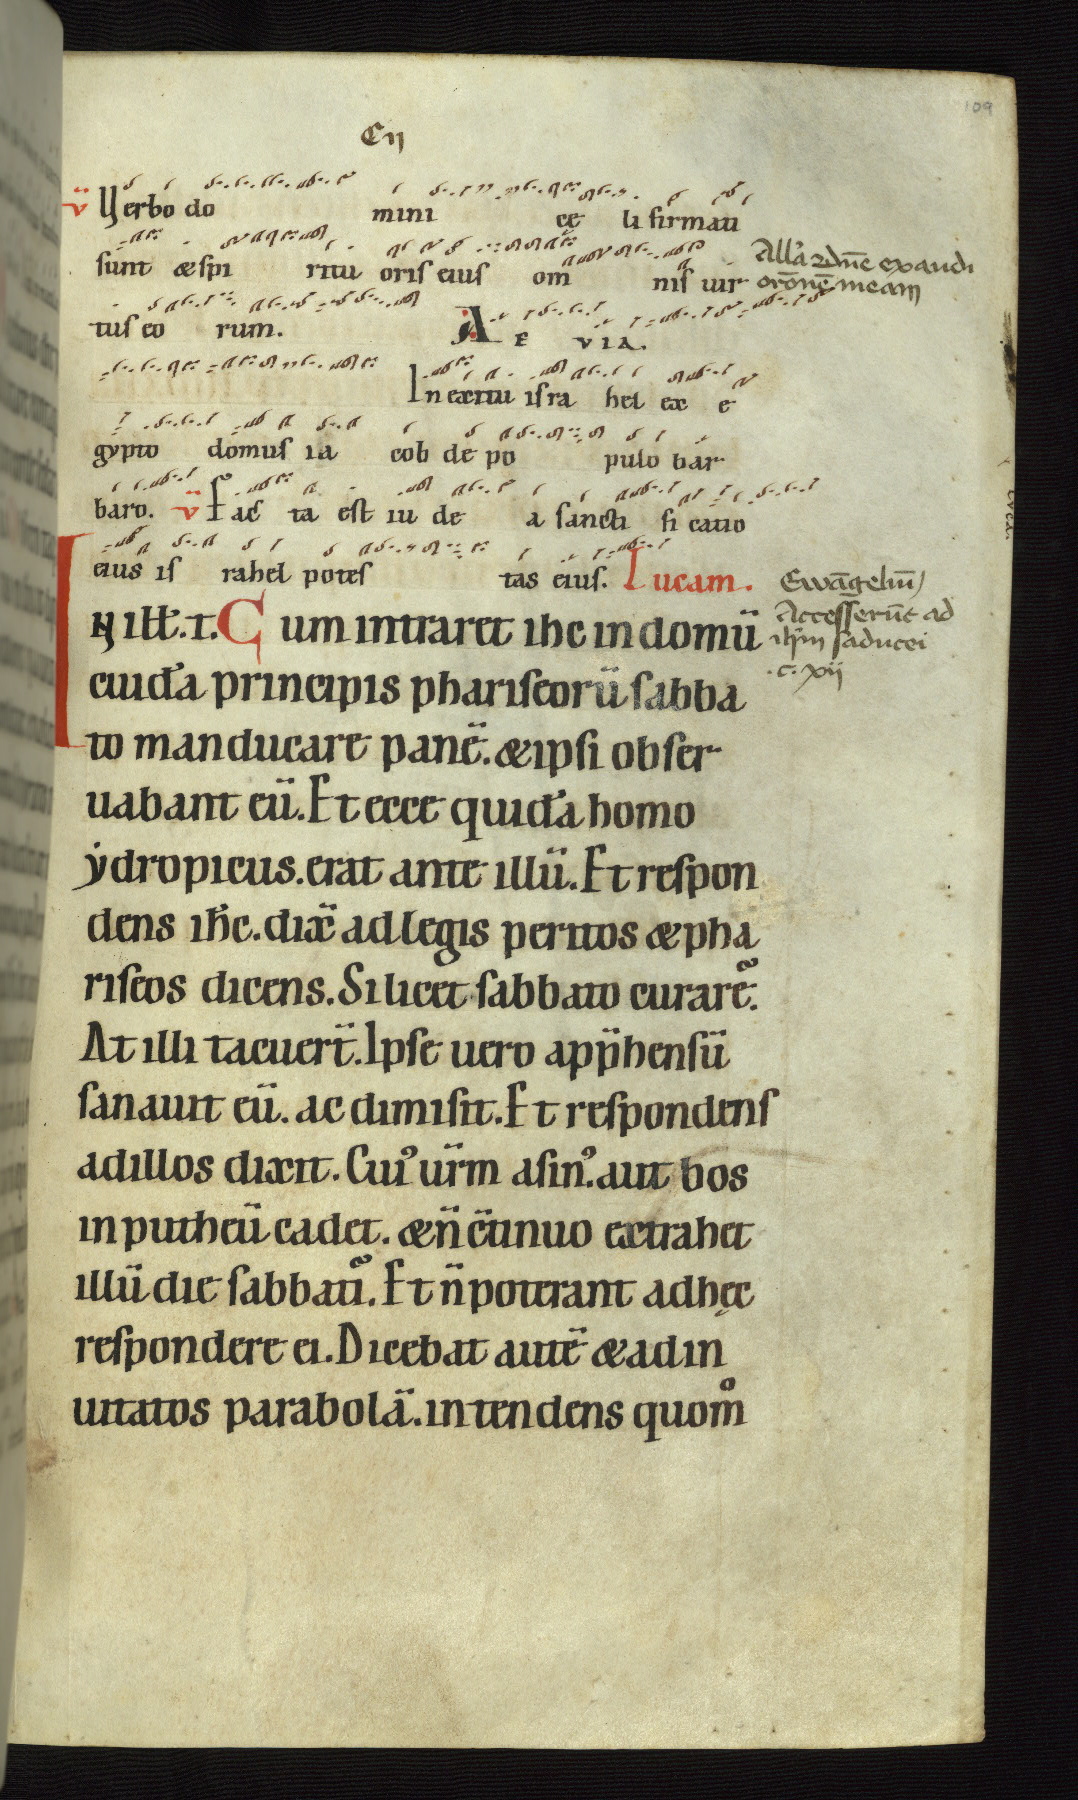 109
Cij
v̈ Verbo do mini cę li firmati
sunt & spi ritu oris eius om nis uir
Alla dne exaudi
oronē meam
tus eo rum. A E VIA.
In exitu isra hel ex e
gypto domus ia cob de po pulo bar
baro. v̈ Fac ta est iu de a sancti fi catio
eius is rahel potes tas eius. Lucam.
Ewāgeliū
Accesserūt ad
ihm saducei
.c. xij
IN ill̄. t. Cum intraret ihc in domū
cuiusdā principis phariseorū sabba
to manducare panē. & ipsi obser
uabant eū. Et ecce quidā homo
ẏdropicus. erat ante illū. Et respon
dens ih̄c. dix̄ ad legis peritos & pha
riseos dicens. Si licet sabbato curare?
At illi tacuer̄t. Ipse uero app̄hensū
sanauit eū. ac dimisit. Et respondens
ad illos dixit. Cui' ur̄m asin'. aut bos
in putheū cadet. & n̄ c̄tinuo extrahet
illū die sabbati? Et n̄ poterant ad hęc
respondere ei. Dicebat autē & ad in
uitatos parabolā. intendens quom̊